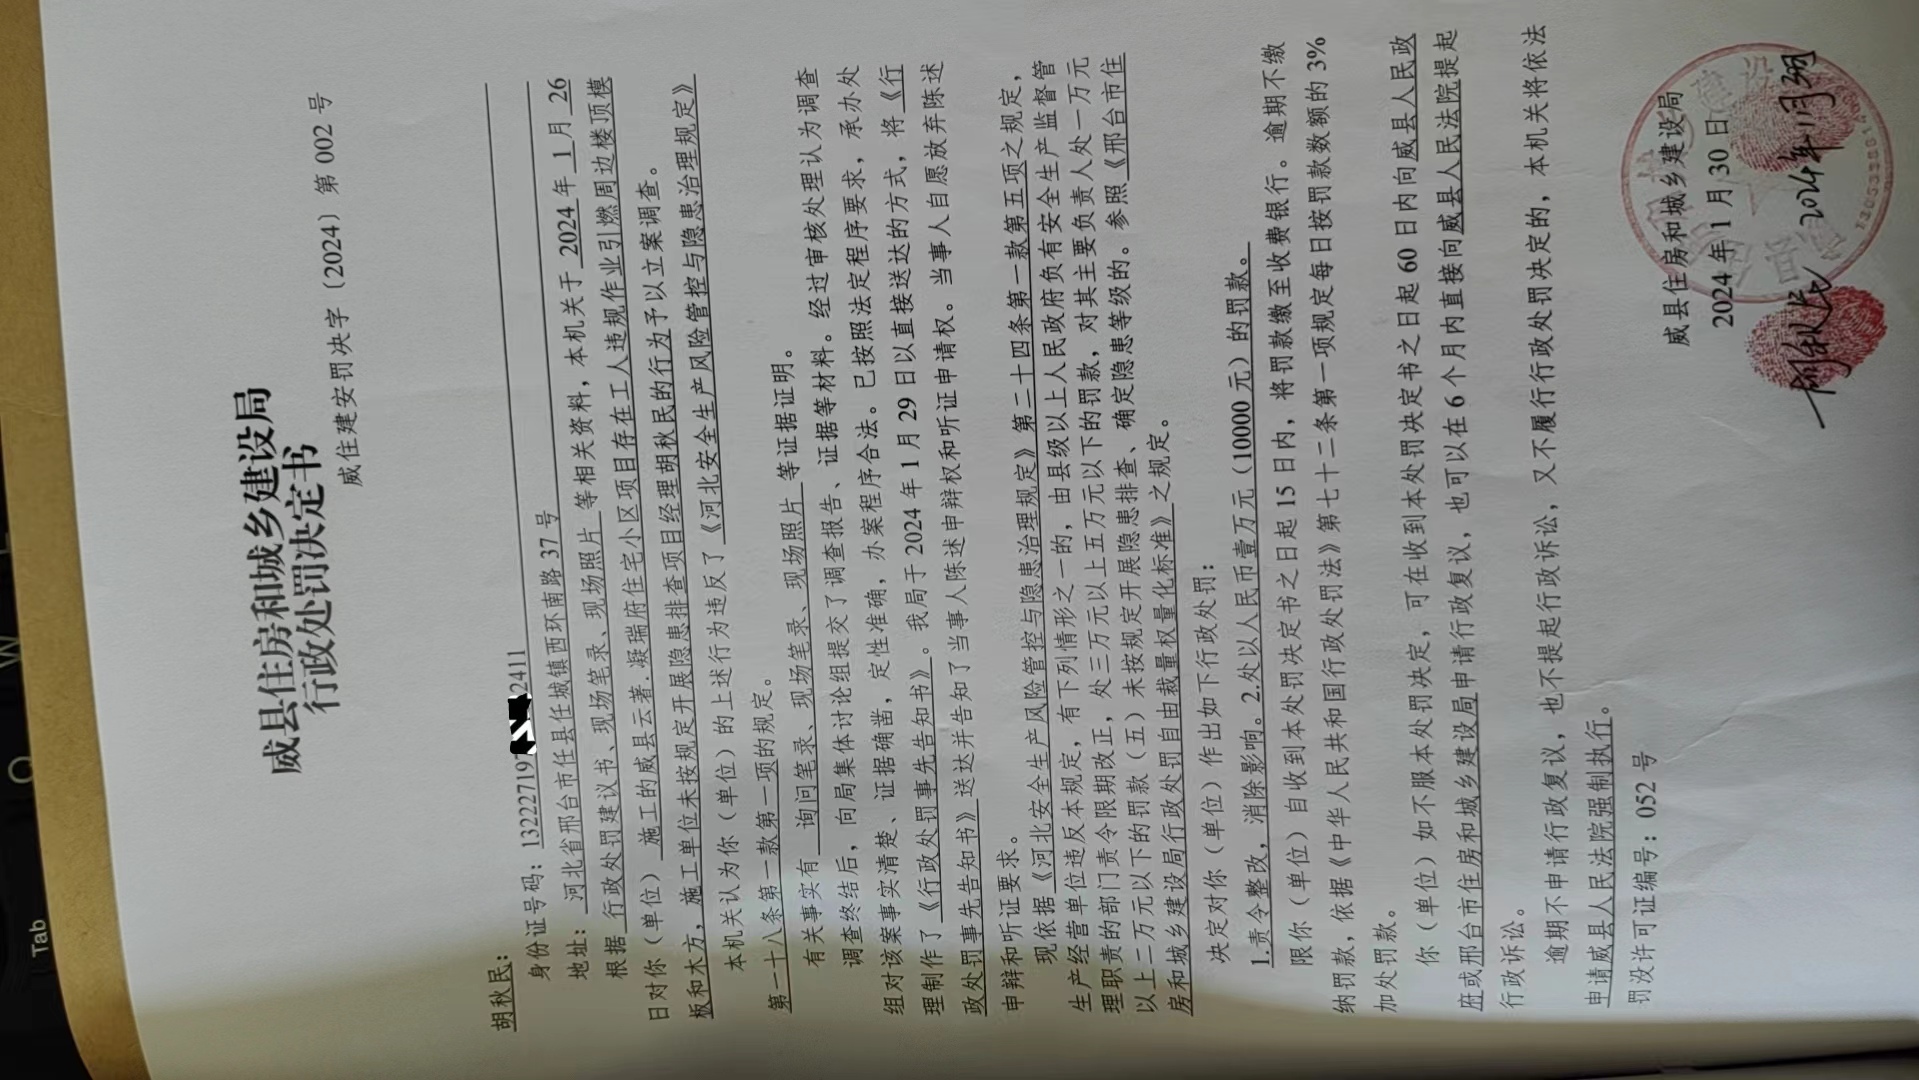 威县住房和城乡建设局
行政处罚决定书
威住建安罚决字〔2024〕第 002 号
胡秋民：
身份证号码：13222719 2411
地址： 河北省邢台市任县任城镇西环南路 37 号
根据 行政处罚建议书、现场笔录、现场照片 等相关资料，本机关于 2024 年 1 月 26
日对你（单位）施工的威县云著.凝瑞府住宅小区项目存在工人违规作业引燃周边楼顶模
板和木方，施工单位未按规定开展隐患排查项目经理胡秋民的行为予以立案调查。
本机关认为你（单位）的上述行为违反了《河北安全生产风险管控与隐患治理规定》
第一十八条第一款第一项的规定。
有关事实有 询问笔录、现场笔录、现场照片 等证据证明。
调查终结后，向局集体讨论组提交了调查报告、证据等材料。经过审核处理认为调查
组对该案事实清楚、证据确凿，定性准确，办案程序合法。已按照法定程序要求，承办处
理制作了《行政处罚事先告知书》。我局于 2024 年 1 月 29 日以直接送达的方式，将《行
政处罚事先告知书》送达并告知了当事人陈述申辩权和听证申请权。当事人自愿放弃陈述
申辩和听证要求。
现依据《河北安全生产风险管控与隐患治理规定》第二十四条第一款第五项之规定，
生产经营单位违反本规定，有下列情形之一的，由县级以上人民政府负有安全生产监督管
理职责的部门责令限期改正，处三万元以上五万元以下的罚款，对其主要负责人处一万元
以上二万元以下的罚款（五）未按规定开展隐患排查、确定隐患等级的。参照《邢台市住
房和城乡建设局行政处罚自由裁量权量化标准》之规定。
决定对你（单位）作出如下行政处罚：
1.责令整改，消除影响。2.处以人民币壹万元（10000 元）的罚款。
限你（单位）自收到本处罚决定书之日起 15 日内，将罚款缴至收费银行。逾期不缴
纳罚款，依据《中华人民共和国行政处罚法》第七十二条第一项规定每日按罚款数额的 3%
加处罚款。
你（单位）如不服本处罚决定，可在收到本处罚决定书之日起 60 日内向威县人民政
府或邢台市住房和城乡建设局申请行政复议，也可以在 6 个月内直接向威县人民法院提起
行政诉讼。
逾期不申请行政复议，也不提起行政诉讼，又不履行行政处罚决定的，本机关将依法
申请威县人民法院强制执行。
罚没许可证编号：052 号
威县住房和城乡建设局
2024 年 1 月 30 日
胡秋民 2024年1月30日